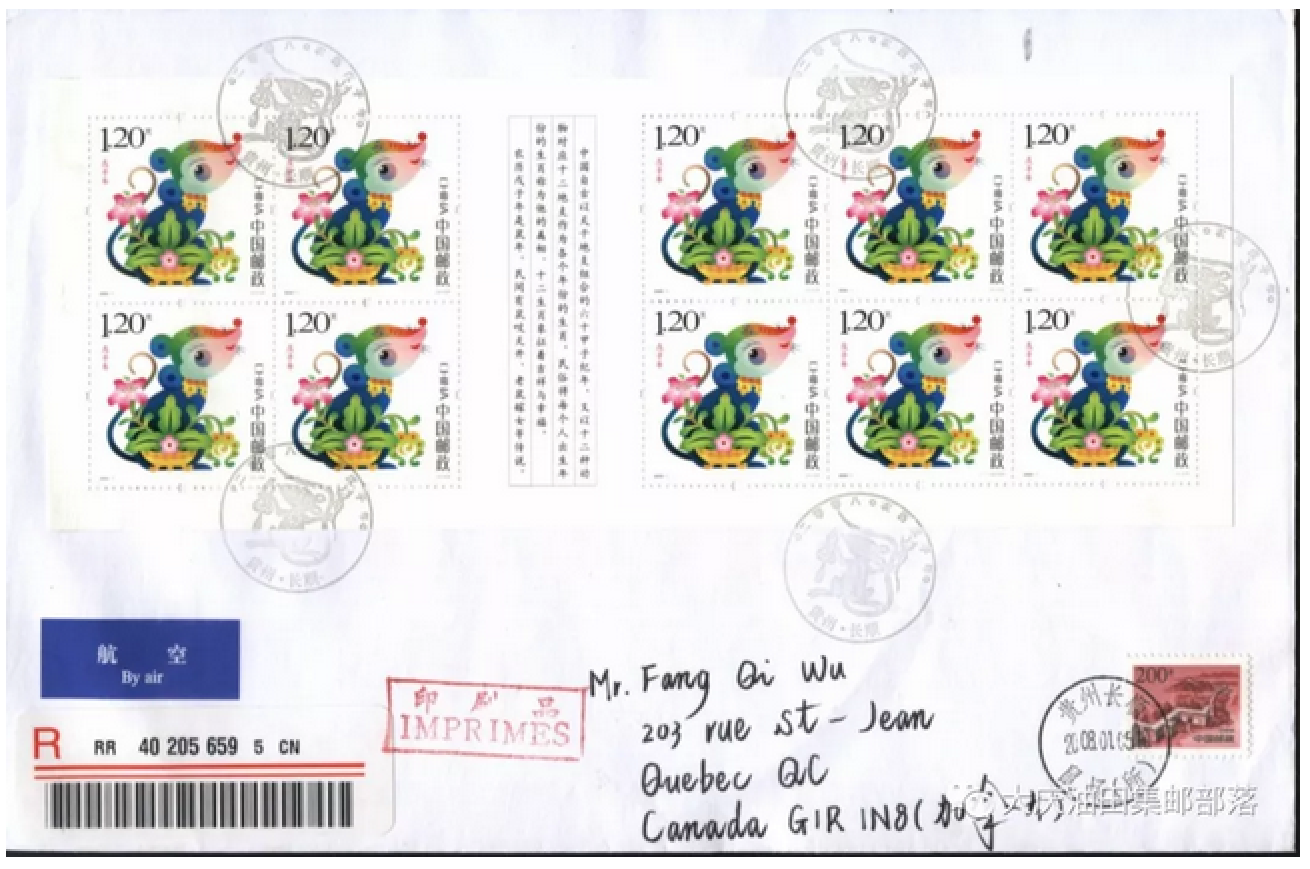 1.20元
戊子年
中国邮政
CHINA
1.20元
中国邮政
CHINA
1.20元
戊子年
中国邮政
CHINA
1.20元
戊子年
中国邮政
CHINA
中国自古以天干地支组合的六十甲子纪年，又以十二种动
物对应十二地支作为各个年份的生肖。民俗将每个人出生年
份的生肖称为他的属相。十二生肖象征着吉祥与幸福。
农历戊子年是鼠年，民间有鼠咬天开、老鼠嫁女等传说。
1.20元
戊子年
中国邮政
CHINA
1.20元
戊子年
中国邮政
CHINA
1.20元
戊子年
中国邮政
CHINA
1.20元
戊子年
中国邮政
CHINA
1.20元
戊子年
中国邮政
CHINA
1.20元
戊子年
中国邮政
CHINA
贵州·长顺
贵州·长顺
贵州·长顺
贵州·长顺
贵州·长顺
航 空
By air
R RR 40 205 659 5 CN
印 刷 品
IMPRIMES
Mr. Fang Qi Wu
203 rue St-Jean
Quebec QC
Canada G1R 1N8(加拿大)
200分
中国邮政
贵州长顺
大庆油田集邮部落